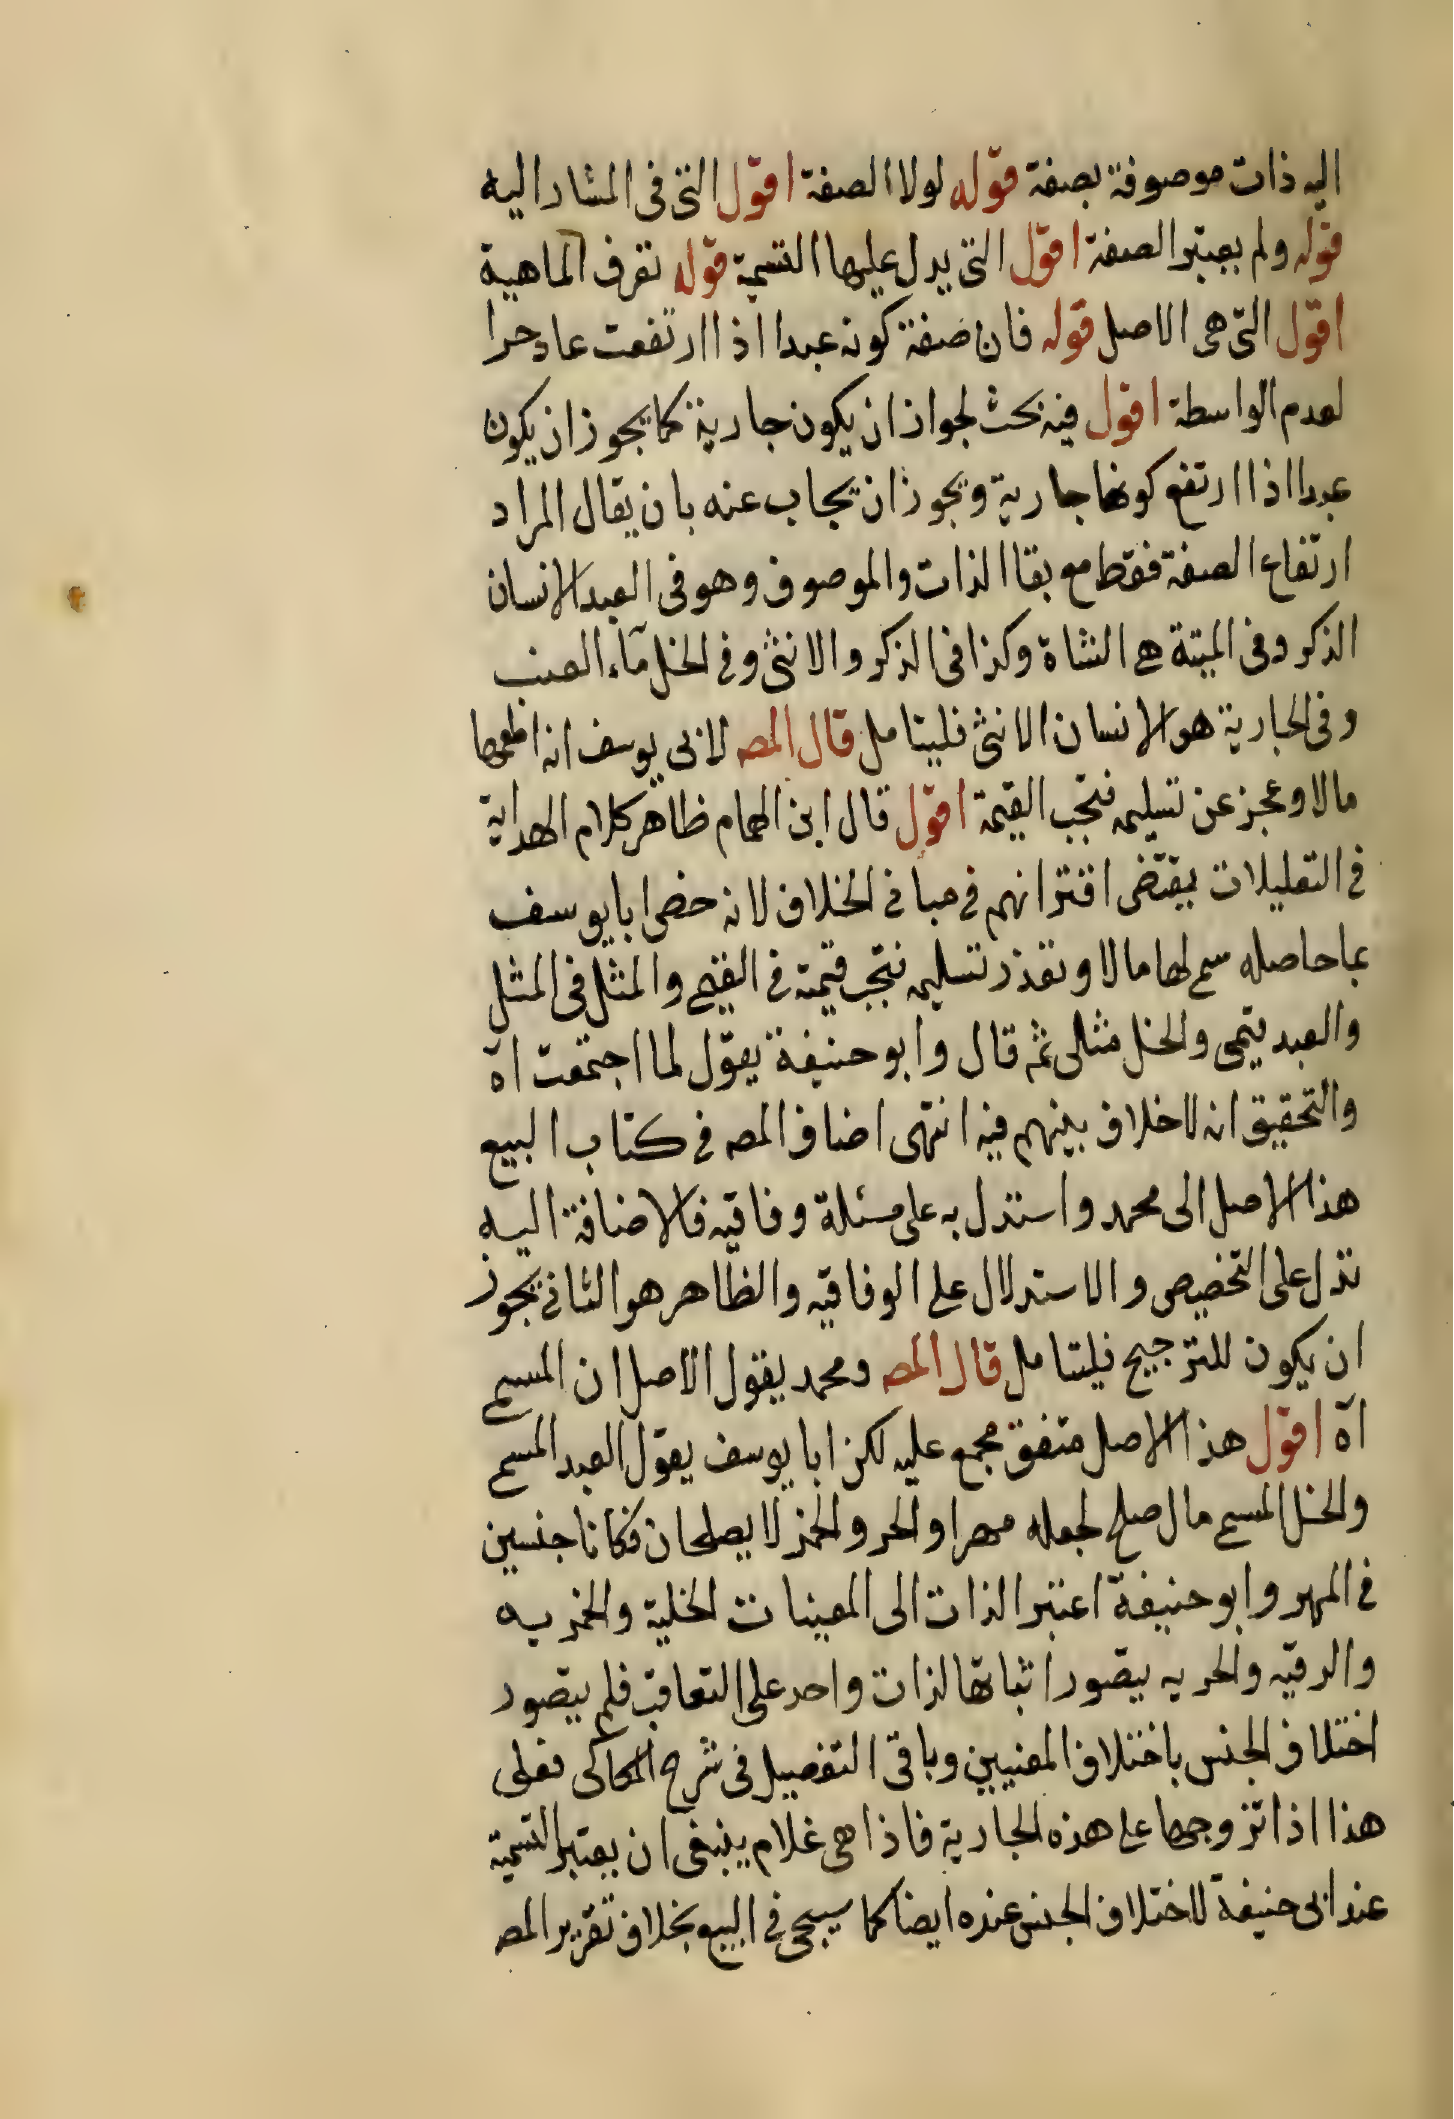 اليه ذات موصوفة بصفة قوله لولا الصفة اقول التى فى المشار اليه
قوله ولم يعتبر الصفة اقول التى يدل عليها التسمية قوله تعرف الماهية
اقول التى هى الاصل قوله فان صفة كونه عبدا اذا ارتفعت عاد حرا
لعدم الواسطة اقول فيه بحث لجواز ان يكون جارية كما يجوز ان يكون
عبدا اذا ارتفع كونها جارية ويجوز ان يجاب عنه بان يقال المراد
ارتفاع الصفة فقط مع بقا الذات والموصوف وهو فى العبد الانسان
الذكر وفى الميتة هى الشاة وكذا فى الذكر والانثى وفى الخل مآء العنب
وفى الجارية هو الانسان الانثى فليتامل قال المصه لابى يوسف انه اطمعها
مالا وعجز عن تسليمه فتجب القيمة اقول قال ابن الهمام ظاهر كلام الهداية
فى التعليلات يقتضى افتراقهم فى مبانى الخلاف لانه خص ابا يوسف
بما حاصله سمى لها مالا وتعذر تسليمه فتجب قيمته فى القيمى والمثل فى المثلى
والعبد قيمى والخل مثلى ثم قال وابو حنيفة يقول لما اجتمعت اه
والتحقيق انه لاخلاف بينهم فيه انتهى اضاف المصه فى كتاب البيع
هذا الاصل الى محمد واستدل به على مسئلة وفاقيه فالاضافة اليه
تدل على التخصيص والاستدلال على الوفاقيه والظاهر هو الثانى يجوز
ان يكون للترجيح فليتامل قال المصه ومحمد يقول الاصل ان المسمى
اه اقول هذا الاصل متفق مجمع عليه لكن ابا يوسف يقول العبد المسمى
والخل المسمى مال صلح لجعله مهرا والحر والخمر لا يصلحان فكانا جنسين
فى المهر وابو حنيفة اعتبر الذات الى المعينات الخلية والخمريه
والرقيه والحريه يتصور اثباتها لذات واحد على التعاقب فلم يتصور
اختلاف الجنس باختلاف المعنيين وباقى التفصيل فى شرح الكاكى فعلى
هذا اذا تزوجها على هذه الجارية فاذا هى غلام ينبغى ان يعتبر التسمية
عند ابى حنيفة لاختلاف الجنس عنده ايضا كما سيجى فى البيع بخلاف تقرير المصه